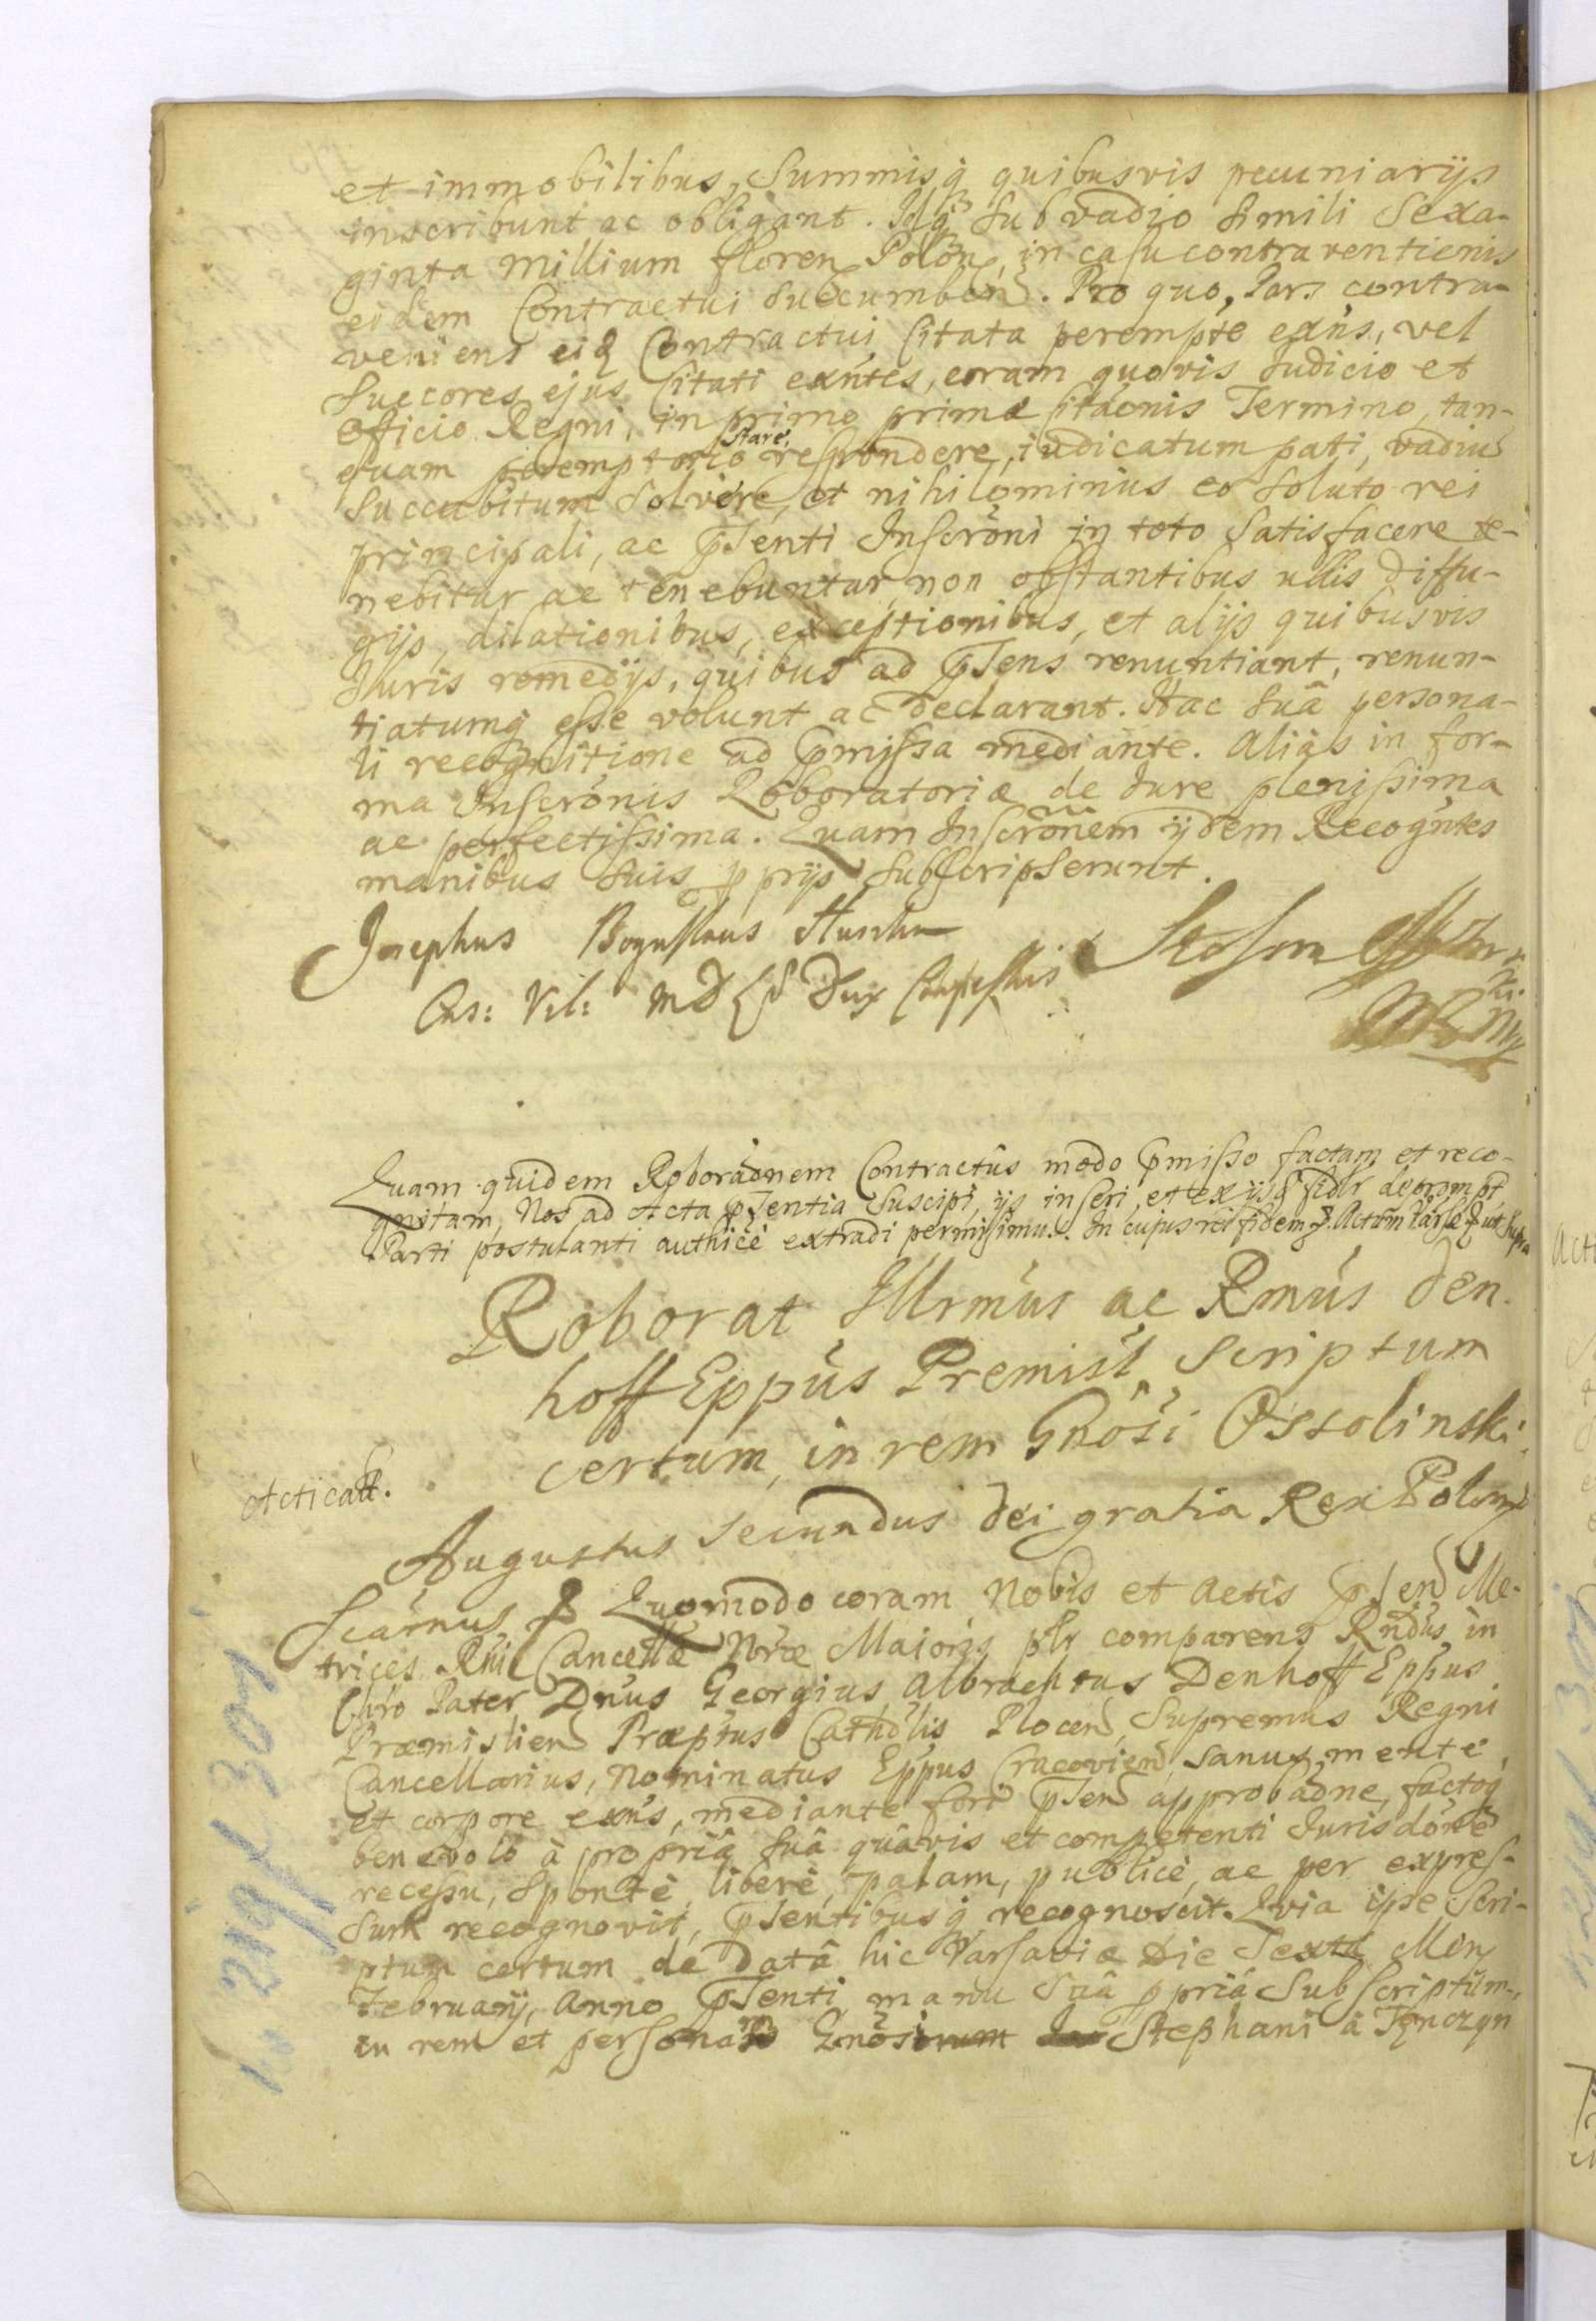 et immobilibus, Summisq̃ quibusvis pecuniarijs
inscribunt ac obligant. Idq̃ sub vadio simili Sexa-
ginta millium floren Polon, in casu contraventionis
eidem Contractui succumben. Pro quo, Pars contra-
veniens eid Contractui Citata perempte exñs, vel
Succores ejus Citati exñtes, coram quovis Judicio et
Officio Regni, in primo primæ Citaõnis Termino, tan-
quam peremptorio stare, respondere, iudicatum pati, vadiũ
Succubitum Solvere, et nihilominus eo Soluto rei
principali, ac p̃senti Inscrõni in toto Satisfacere te-
nebitur ac tenebuntur, non obstantibus ullis diffu-
gijs, dilationibus, exceptionibus, et alijs quibusvis
Juris remedijs, quibus ad p̃sens renuntiant, renun-
tiatumq̃ esse volunt ac declarant. Hac suâ persona-
li recognitione ad p̃missa mediante. Aliàs in for-
ma Inscrõnis Roboratoriæ de Jure plenissima
ac perfectissima. Quam Inscrõnem ijdem Recogñtes
manibus suis pprijs Subscripserunt.
Josephus Boguslaus Slushka
Cas: Vil: M D L Dux Campestris
Quam quidem Roboraõnem Contractûs modo p̃misso factam et reco-
gnitam, Nos ad Acta p̃sentia Suscipi, ijs inseri, et ex ijsd fidlr deprompt
Parti postulanti authicè extradi permisimus. In cujus rei fidem &. Actum Varsæ & ut supra
Roborat Illrmus ac Rmus Den-
hoff Eppus Premisl, Scriptum
certum, in rem Gñosi Ossolinski.
Acticatt.
Augustus Secundus Dei gratia Rex Polon
Scamus & Quomodo coram Nobis et Actis p̃sen Me-
trices Rñi Cancellæ Nræ Maioris plr comparens Rñdus in
Chro Pater Dnus Georgius Albrachtus Denhoff Eppus
Præmislien Præptus Cathdlis Plocen, Supremus Regni
Cancellarius, Nominatus Eppus Cracovien, sanus mente
et corpore exñs, mediante fori p̃sen approbaõne, factoq̃
benevolo à propriâ suâ quâvis et competenti Jurisdõne
recessu, Sponte, liberè, palam, publicè, ac per expres-
sum recognovit, p̃sentibusq̃ recognoscit. Quia ipse Scri-
ptum certum de Datâ hic Varsaviæ die Sexta Men
February, Anno p̃senti manu suâ ppriâ Subscriptum,
in rem et personam Gñosi Stephani à Tęnczyn
No 219 f 301